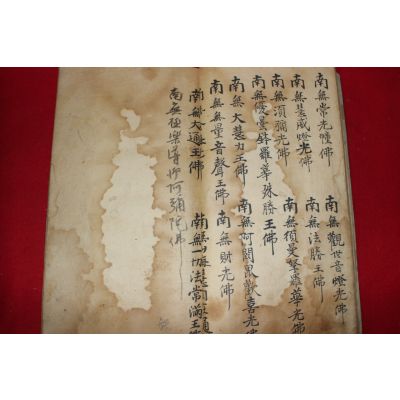 南無常光幢佛 南無觀世音燈光佛
南無慧威燈光佛 南無法勝王佛
南無須彌光佛 南無須曼羅華光佛
南無優曇鉢羅華殊勝王佛
南無大慧力王佛 南無阿閦毘歡喜光佛
南無無量音聲王佛 南無財光佛
南無大通王佛 南無一切法常滿王佛
南無極樂導師阿彌陀佛